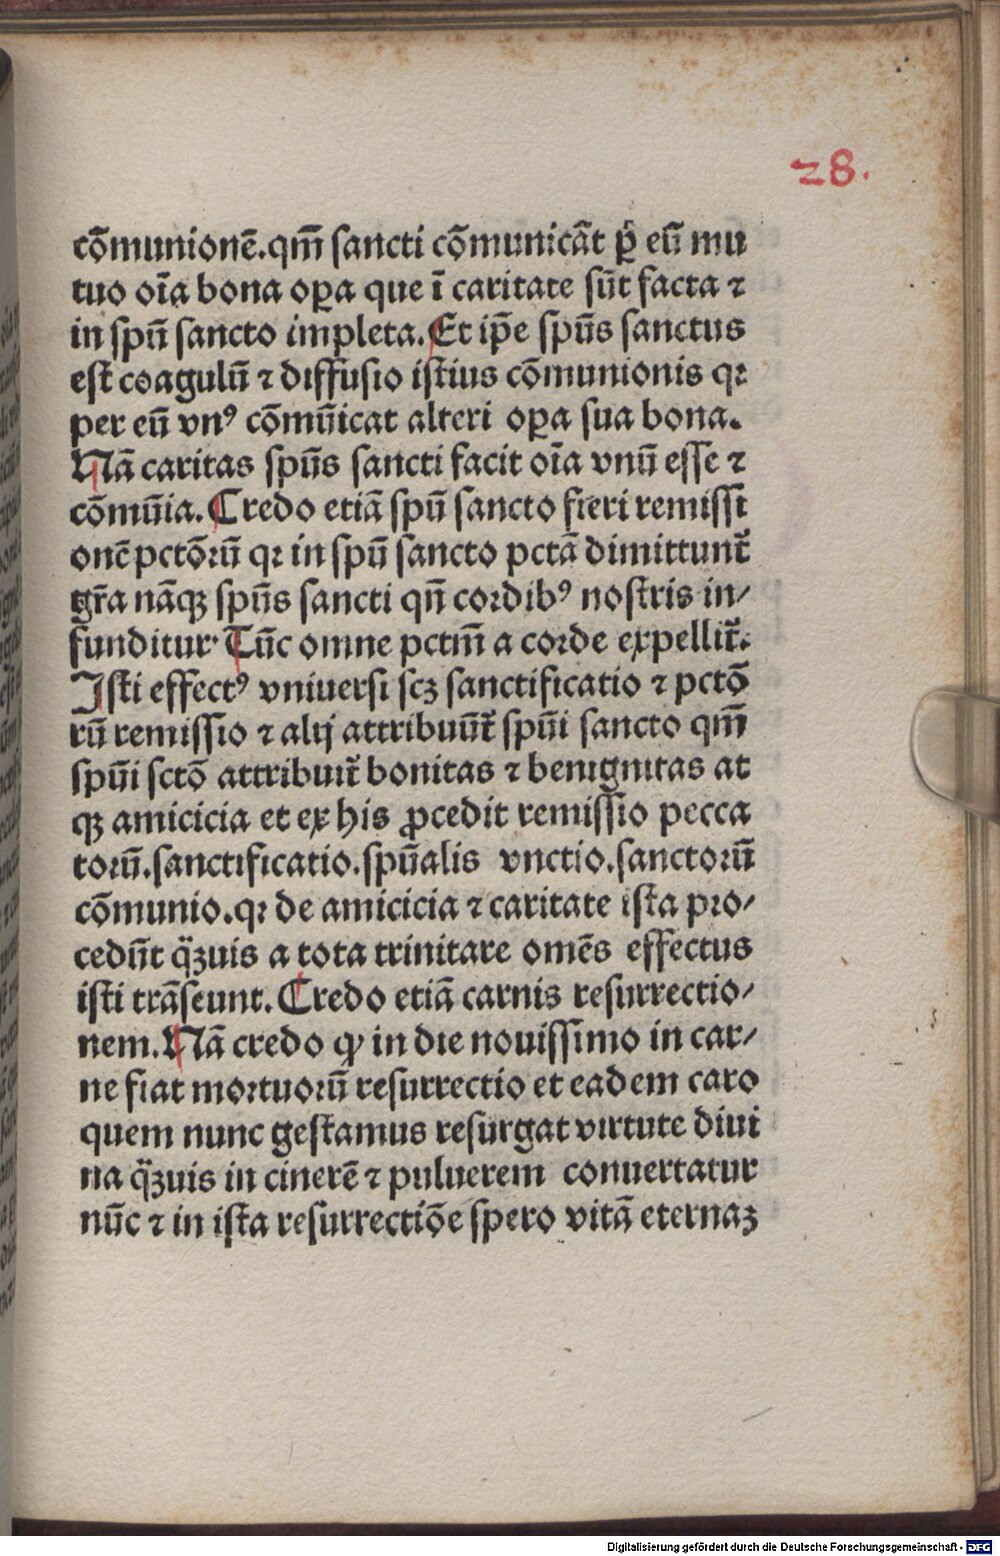 28.
cōmunionē.qm̄ ſancti cōmunicāt ꝑ eū mu
tuo oīa bona oꝑa que ī caritate ſūt facta ⁊
in ſpū ſancto impleta. Et ip̄e ſpūs ſanctus
eſt coagulū ⁊ diffuſio iſtius cōmunionis qꝛ
per eū vnꝰ cōmūicat alteri oꝑa ſua bona.
Nā caritas ſpūs ſancti facit oīa vnū eſſe ⁊
cōmūia. Credo etiā ſpū ſancto fieri remiſſi
onē pctōꝛū qꝛ in ſpū ſancto pctā dimittunt᷑
gr̄a nāqꝫ ſpūs ſancti qn̄ coꝛdibꝰ noſtris in⸗
funditur· Tūc omne pctm̄ a coꝛde expellit᷑.
Iſti effectꝰ vniuerſi ſcꝫ ſanctificatio ⁊ pctō
rū remiſſio ⁊ alij attribuūt᷑ ſpūi ſancto qm̄
ſpūi ſctō attribuit᷑ bonitas ⁊ benignitas at
qꝫ amicicia et ex his ꝓcedit remiſſio pecca
toꝛū.ſanctificatio.ſpūalis vnctio.ſanctoꝛū
cōmunio.qꝛ de amicicia ⁊ caritate iſta pꝛo⸗
cedūt q̈ꝫuis a tota trinitate omēs effectus
iſti trāſeunt. Credo etiā carnis reſurrectio⸗
nem. Nā credo ꝙ in die nouiſſimo in car⸗
ne fiat moꝛtuoꝛū reſurrectio et eadem caro
quem nunc geſtamus reſurgat virtute diui
na q̈ꝫuis in cinerē ⁊ puluerem conuertatur
nūc ⁊ in iſta reſurrectiōe ſpero vitā eternaꝫ
Digitalisierung gefördert durch die Deutsche Forschungsgemeinschaft - DFG